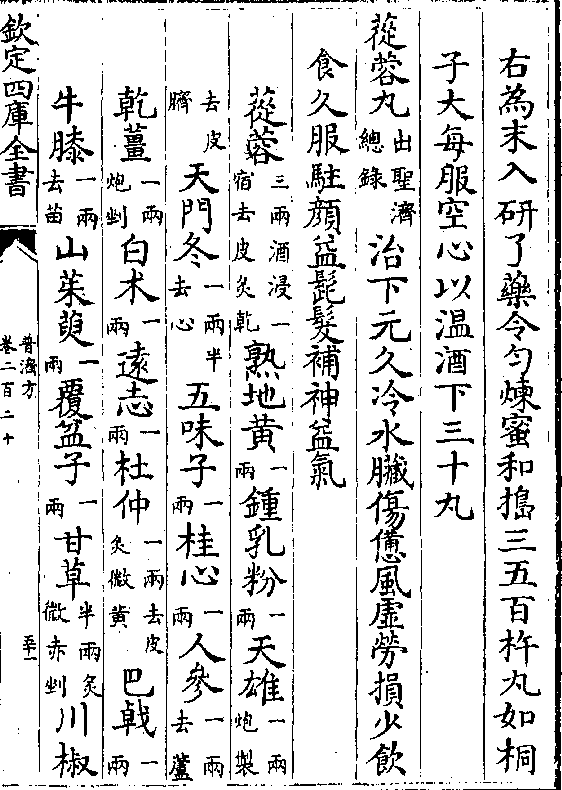 右為末入研了藥令匀煉蜜和搗三五百杵丸如桐
子大每服空心以温酒下三十丸
蓯蓉丸出聖濟總錄治下元久冷水臟傷憊風虚勞損少飲
食久服駐顔益髭髮補神益氣
蓯蓉三兩酒浸一宿去皮炙乾熟地黄一兩鍾乳粉一兩天雄一兩炮製
去皮臍天門冬一兩半去心五味子一兩桂心一兩人參一兩去蘆
乾薑一兩炮剉白术一兩遠志一兩杜仲一兩去皮炙微黄巴戟一兩
牛膝一兩去苗山茱萸一兩覆盆子一兩甘草半兩炙微赤剉川椒
欽定四庫全書
普濟方
卷二百二十
至一